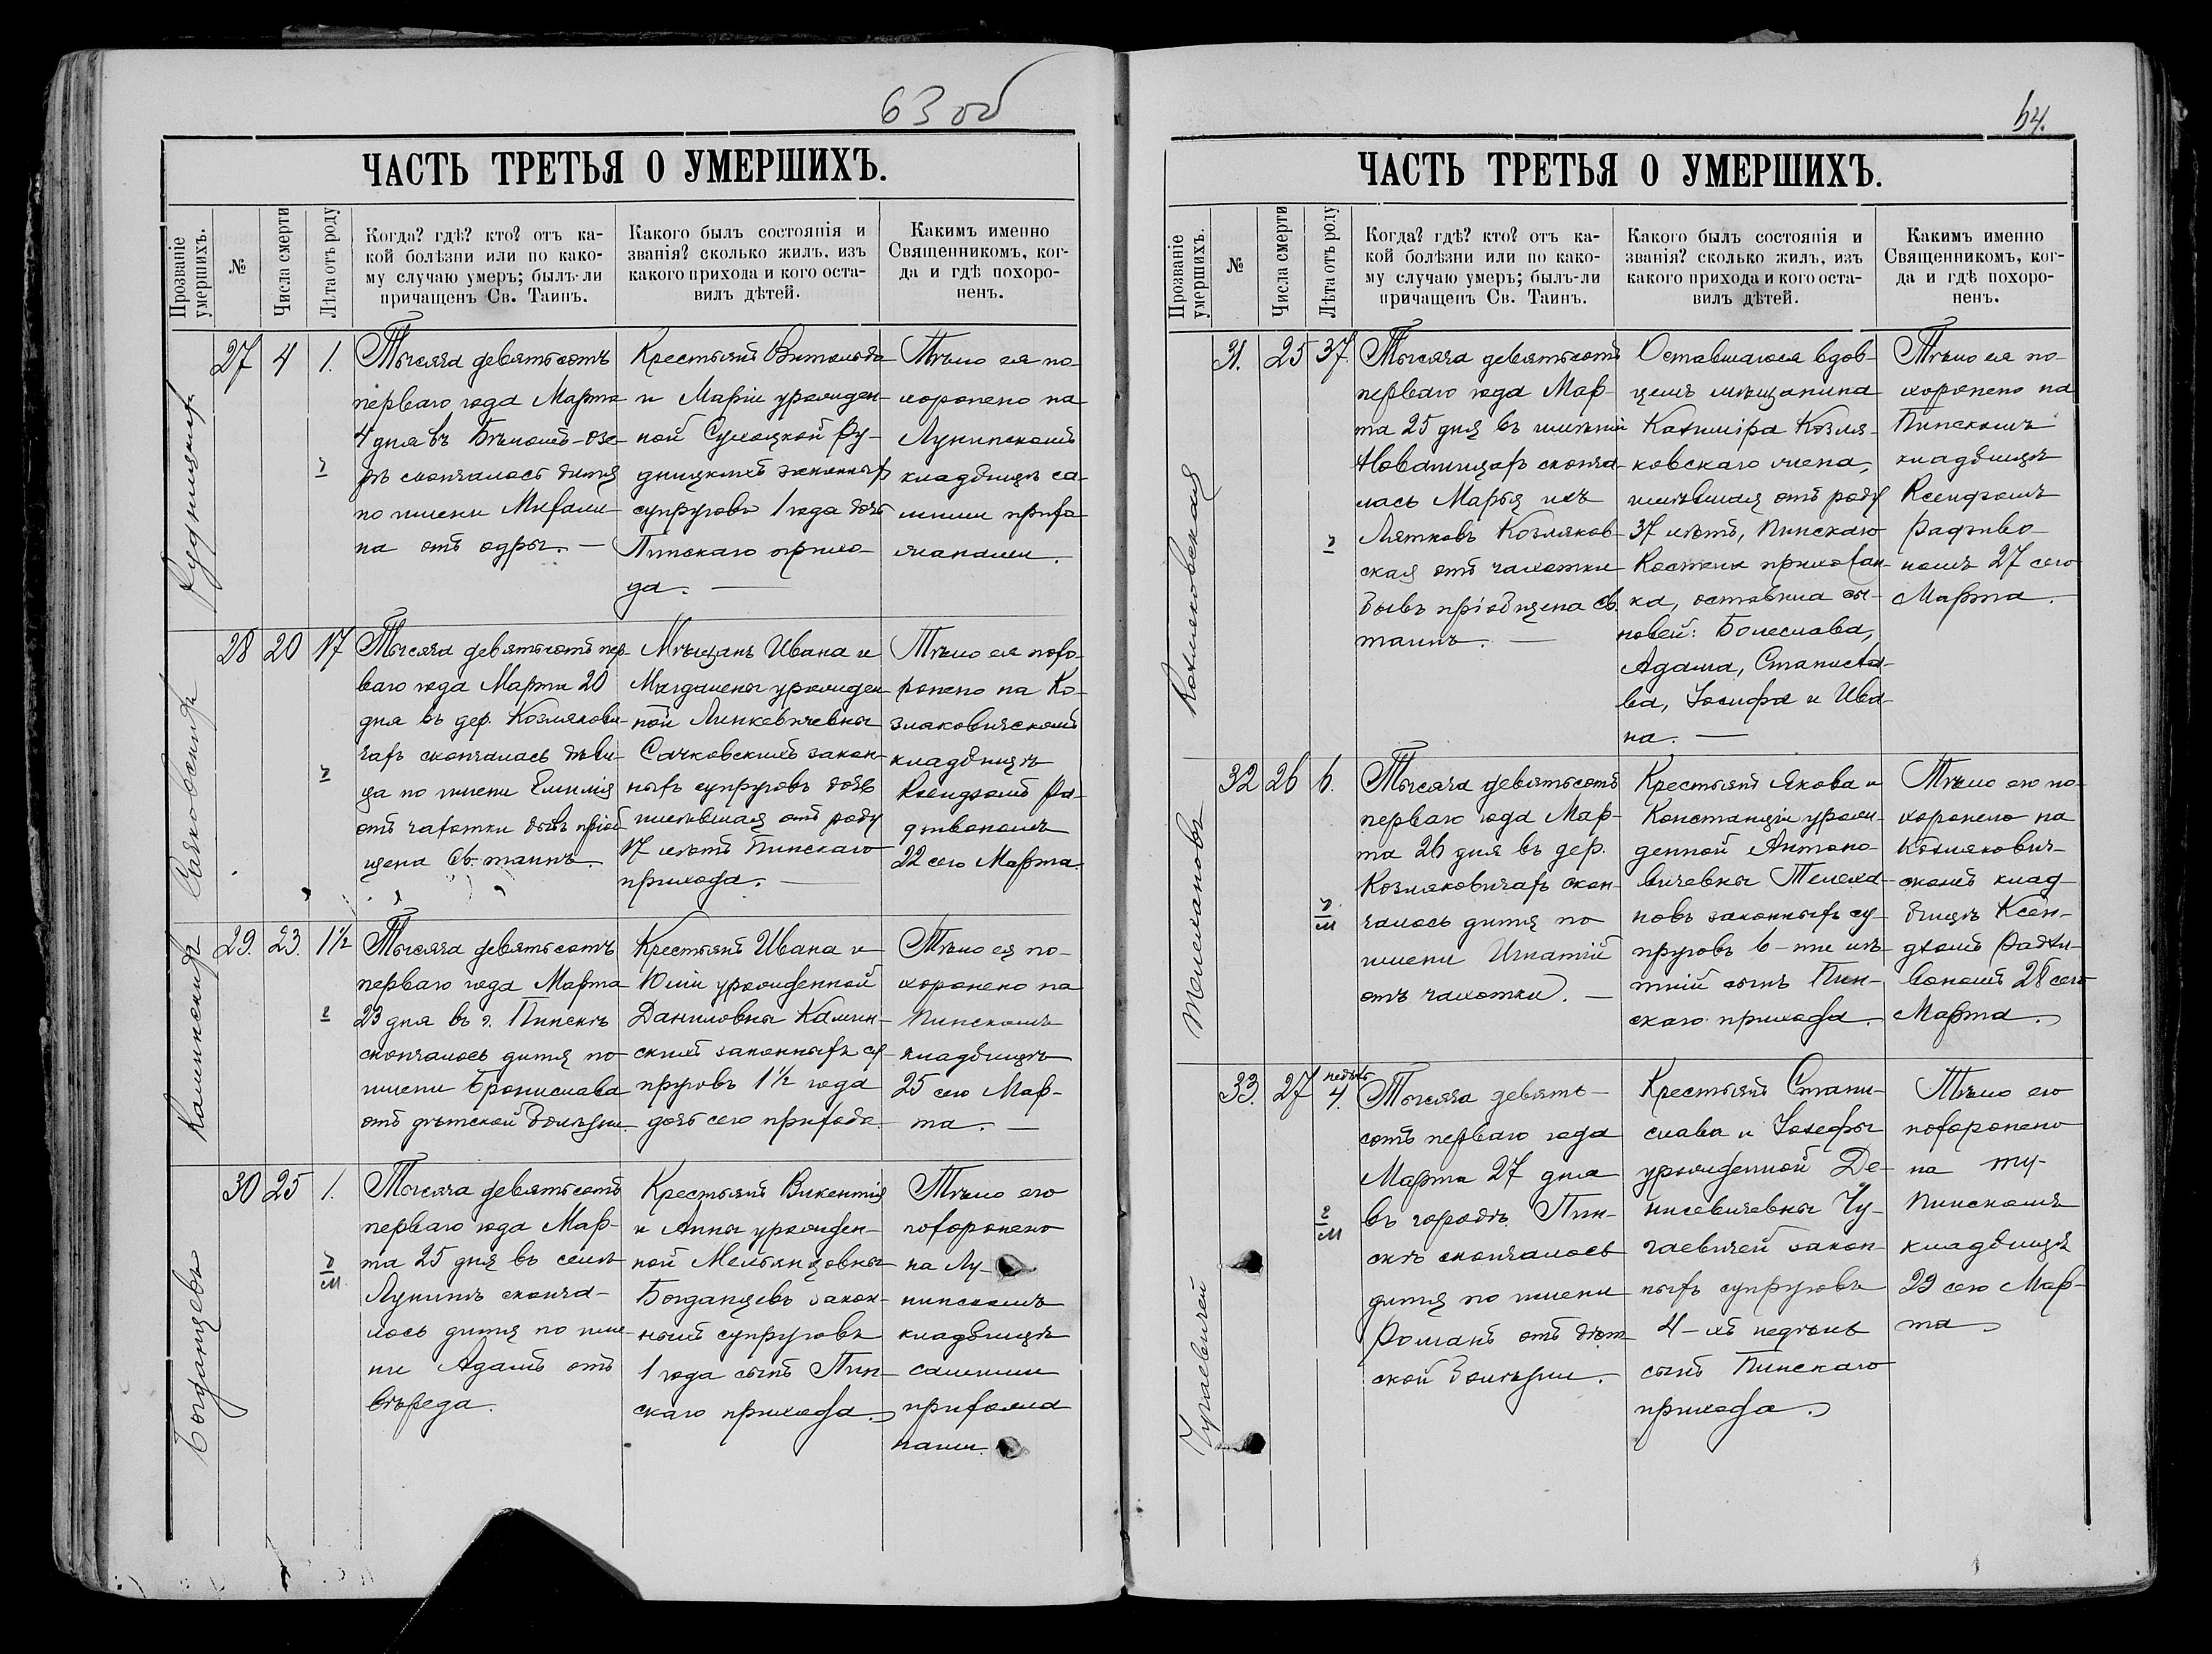 63 об
ЧАСТЬ ТРЕТЬЯ О УМЕРШИХЪ.
Прозваніе умершихъ.
№
Числа смерти
Лѣта отъ роду
Когда? гдѣ? кто? отъ ка-
кой болѣзни или по како-
му случаю умеръ; былъ-ли
причащенъ Св. Таинъ.
Какого былъ состоянія и
званія? сколько жилъ, изъ
какого прихода и кого оста-
вилъ дѣтей.
Какимъ именно
Священникомъ, ког-
да и гдѣ похоро-
ненъ.
Рудницкихъ
27 4 1.
Тысяча девятьсотъ
перваго года Марта
4 дня въ Бѣломъ-озе-
рѣ скончалась дитя
по имени Михали-
на отъ одры. —
Крестьянъ Витольда
и Маріи урожден-
ной Сухоцкой Ру-
дницкихъ законныхъ
супруговъ 1 года дочь
Пинскаго прихо-
да. —
Тѣло ея по-
хоронено на
Лунинскомъ
кладбищѣ са-
мими прихо-
жанами.
Сачковскихъ
28 20 17
Тысяча девятьсотъ пер-
ваго года Марта 20
дня въ дер. Козлякови-
чахъ скончалась дѣви-
ца по имени Емилія
отъ чахотки бывъ пріоб-
щена Св. таинъ.
Мѣщанъ Ивана и
Магдалены урожден-
ной Линкевичевны
Сачковскихъ закон-
ныхъ супруговъ дочь
имѣвшая отъ роду
17 лѣтъ Пинскаго
прихода. —
Тѣло ея похо-
ронено на Ко-
зляковичскомъ
кладбищѣ
Ксендзомъ Ра-
дзивономъ
22 сего Марта.
Калинскихъ
29. 23. 1½
Тысяча девятьсотъ
перваго года Марта
23 дня въ г. Пинскѣ
скончалось дитя по
имени Бронислава
отъ дѣтской болѣзни.
Крестьянъ Ивана и
Юліи урожденной
Даниловны Калин-
скихъ законныхъ су-
пруговъ 1½ года
дочь сего прихода.
Тѣло ея по-
хоронено на
Пинскомъ
кладбищѣ
25 сего Мар-
та. —
Богданцевъ
30 25 1.
Тысяча девятьсотъ
перваго года Мар-
та 25 дня въ селѣ
Лунинѣ сконча-
лось дитя по име-
ни Адамъ отъ
вѣреда.
Крестьянъ Викентія
и Анны урожден-
ной Мельянцовны
Богданцевъ закон-
ныхъ супруговъ
1 года сынъ Пин-
скаго прихода.
Тѣло его
похоронено
на Лу-
нинскомъ
кладбищѣ
самими
прихожа
нами.
64.
ЧАСТЬ ТРЕТЬЯ О УМЕРШИХЪ.
Прозваніе умершихъ.
№
Числа смерти
Лѣта отъ роду
Когда? гдѣ? кто? отъ ка-
кой болѣзни или по како-
му случаю умеръ; былъ-ли
причащенъ Св. Таинъ.
Какого былъ состоянія и
званія? сколько жилъ, изъ
какого прихода и кого оста-
вилъ дѣтей.
Какимъ именно
Священникомъ, ког-
да и гдѣ похоро-
ненъ.
Козляковская
31. 25 37.
Тысяча девятьсотъ
перваго года Мар-
та 25 дня въ имѣніи
сконча-
лась Марья изъ
Лятковъ Козляков-
ская отъ чахотки
бывъ пріобщена Св.
таинъ. —
Оставшагося вдов-
цемъ мѣщанина
Казиміра Козля-
ковскаго жена,
имѣвшая отъ роду
37 лѣтъ, Пинскаго
Костела прихожан-
ка, оставила сы-
новей: Болеслава,
Адама, Станисла-
ва, Іосифа и Ива-
на. —
Тѣло ея по-
хоронено на
Пинскомъ
кладбищѣ
Ксендзомъ
Радзиво-
номъ 27 сего
Марта.
Телехановъ
32 26 6.
Тысяча девятьсотъ
перваго года Мар-
та 26 дня въ дер.
Козляковичахъ скон-
чалось дитя по
имени Игнатій
отъ чахотки. —
Крестьянъ Якова и
Констанціи урож-
денной Антоно-
вичевны Телеха-
новъ законныхъ су-
пруговъ 6-ти лѣ-
тній сынъ Пин-
скаго прихода.
Тѣло его по-
хоронено на
Козлякович-
скомъ клад-
бищѣ Ксен-
дзомъ Радзи-
вономъ 28 сего
Марта.
Чугаевичей
33. 27 недѣль 4.
Тысяча девять-
сотъ перваго года
Марта 27 дня
въ городѣ Пин-
скѣ скончалось
дитя по имени
Романъ отъ дѣт-
ской болѣзни.
Крестьянъ Стани-
слава и Іозефы
урожденной Де-
нисевичевны Чу-
гаевичей закон-
ныхъ супруговъ
4-хъ недѣль
сынъ Пинскаго
прихода.
Тѣло его
похоронено
на
Пинскомъ
кладбищѣ
29 сего Мар-
та